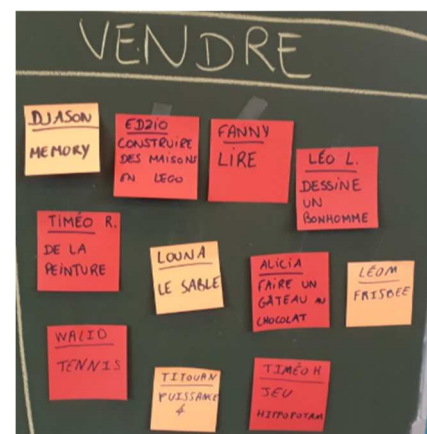 VENDRE
DJASON
MEMORY
EDZIO
CONSTRUIRE
DES MAISONS
EN LEGO
FANNY
LIRE
LÉO L.
DESSINE
UN
BONHOMME
TIMÉO R.
DE LA
PEINTURE
LOUNA
LE SABLE
ALICIA
FAIRE UN
GÂTEAU AU
CHOCOLAT
LÉO M
FRISBEE
WALID
TENNIS
TITOUAN
PUISSANCE
4
TIMÉO H
JEU
HIPPOPOTAM